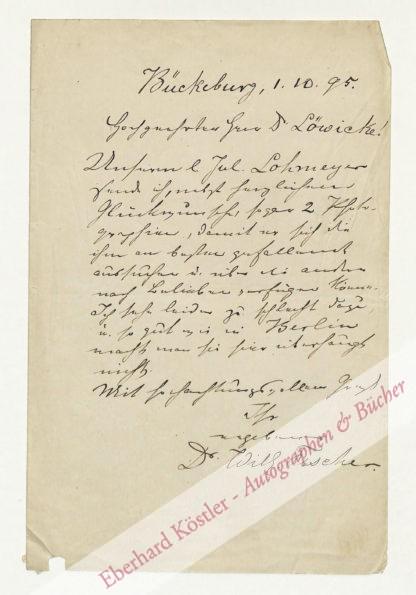 Bückeburg, 1. 10. 95.
Hochgeehrter Herr Dr Löwicke!
Unserm l. Jul. Lohmeyer
sende ich, nebst herzlichem
Glückwunsche, sogar 2 Photo-
graphien, damit er sich die
ihm am besten gefallende
aussuchen u. über die andere
nach Belieben verfügen könne.
Ich sehe leider zu schlecht dazu,
u. so gut wie in Berlin
macht man sie hier überhaupt
nicht.
Mit hochachtungsvollem Gruß
Ihr
ergebener
Dr. Wilh. Fischer.
Eberhard Köstler - Autographen & Bücher